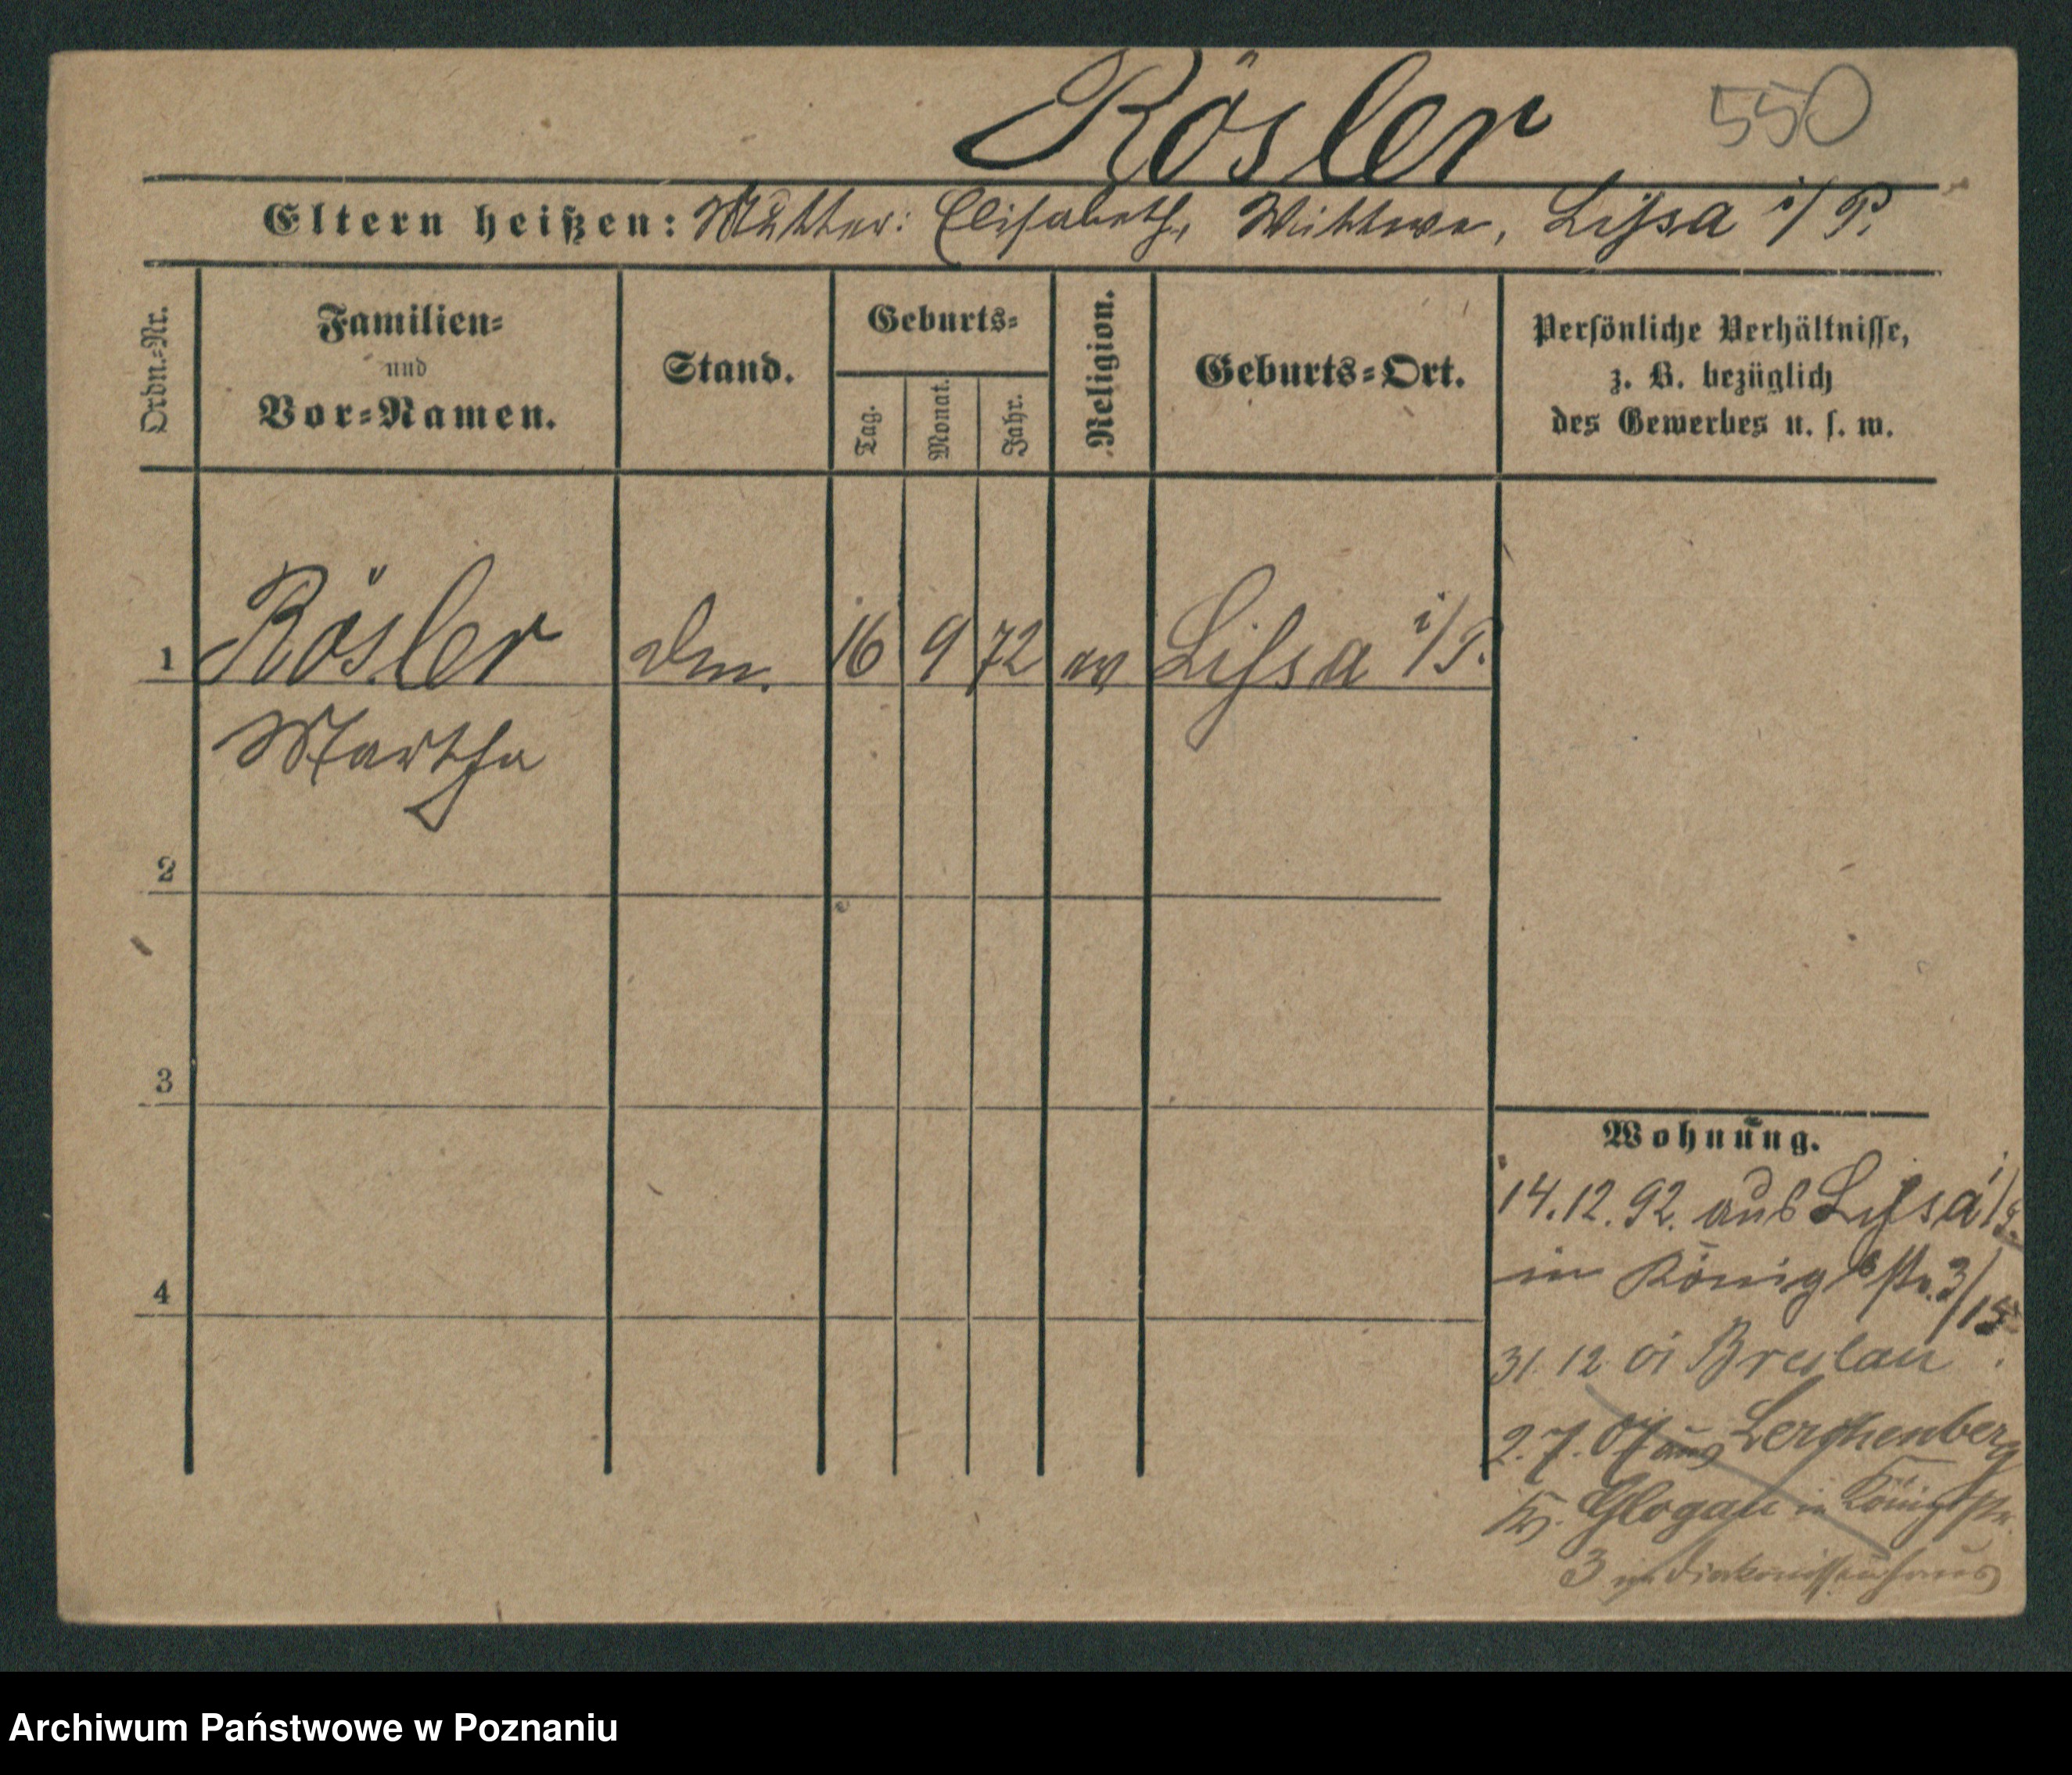 Rösler 550
Eltern heißen: Mutter: Elisabeth, Wittwe, Lissa i/P.
Ordn.-Nr.
Familien-
und
Vor-Namen.
Stand.
Geburts-
Tag.
Monat.
Jahr.
Religion.
Geburts-Ort.
Persönliche Verhältnisse,
z. B. bezüglich
des Gewerbes u. s. w.
1 Rösler 16 9 72 ev Lissa i/P.
Martha
2
3
4
Wohnung.
14.12.92. aus Lissa i/P.
in Königsstr. 3/15
31. 12 01 Breslau
2.7.07 aus Lerchenberg
Kr. Glogau in Königstr.
3 im Diakonissenhaus
Archiwum Państwowe w Poznaniu